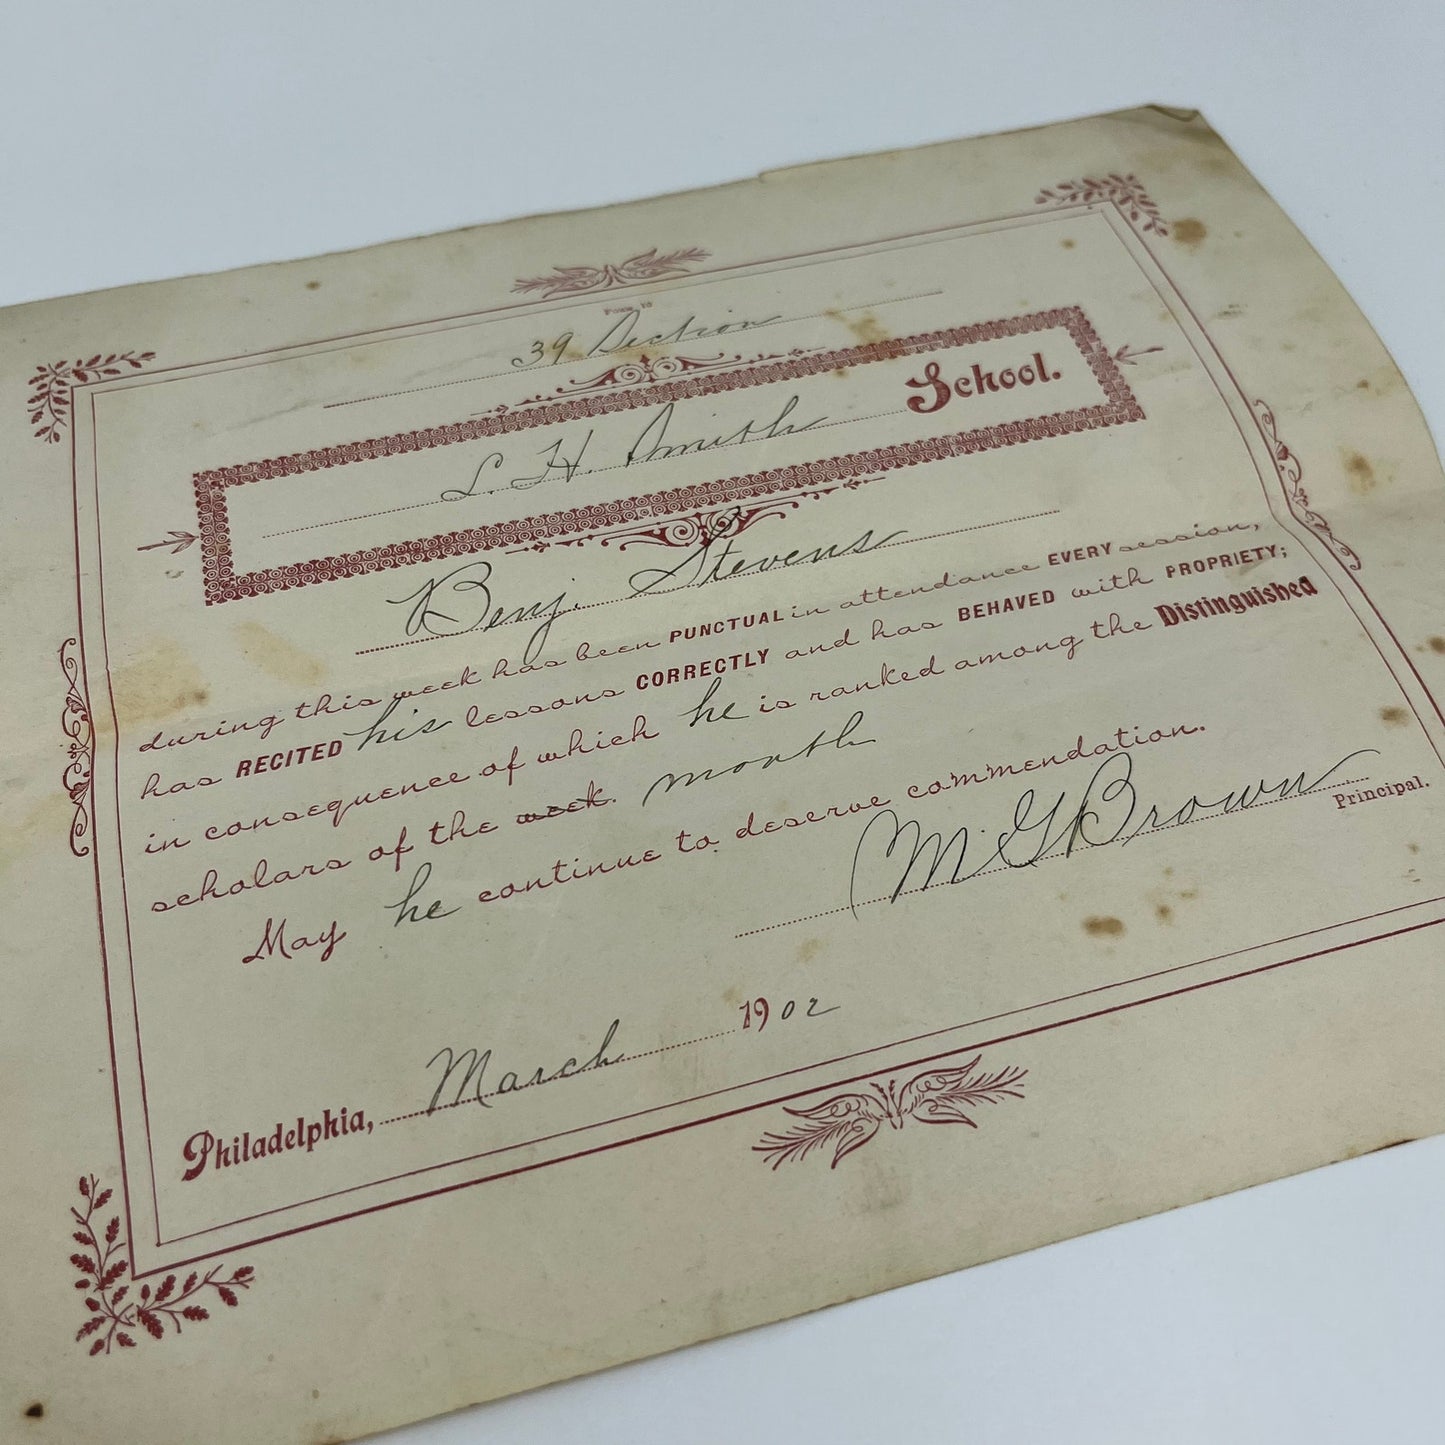 39 Section
L. H. Smith School.
Benj. Stevens
during this week has been PUNCTUAL in attendance EVERY session,
has RECITED his lessons CORRECTLY and has BEHAVED with PROPRIETY;
in consequence of which he is ranked among the Distinguished
scholars of the week. month
May he continue to deserve commendation.
M G Brown
Principal.
Philadelphia, March 1902